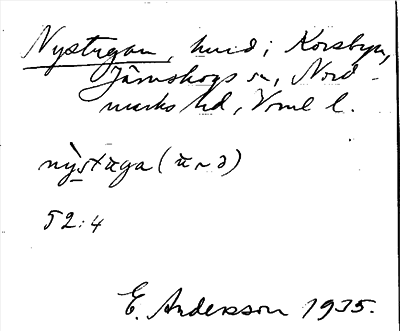 Nystugan, hmd i Korsbyn,
Järnskogs sn, Nord-
marks hd, Vrml l.
nỳstäga (
52:4
E. Andersson 1935.